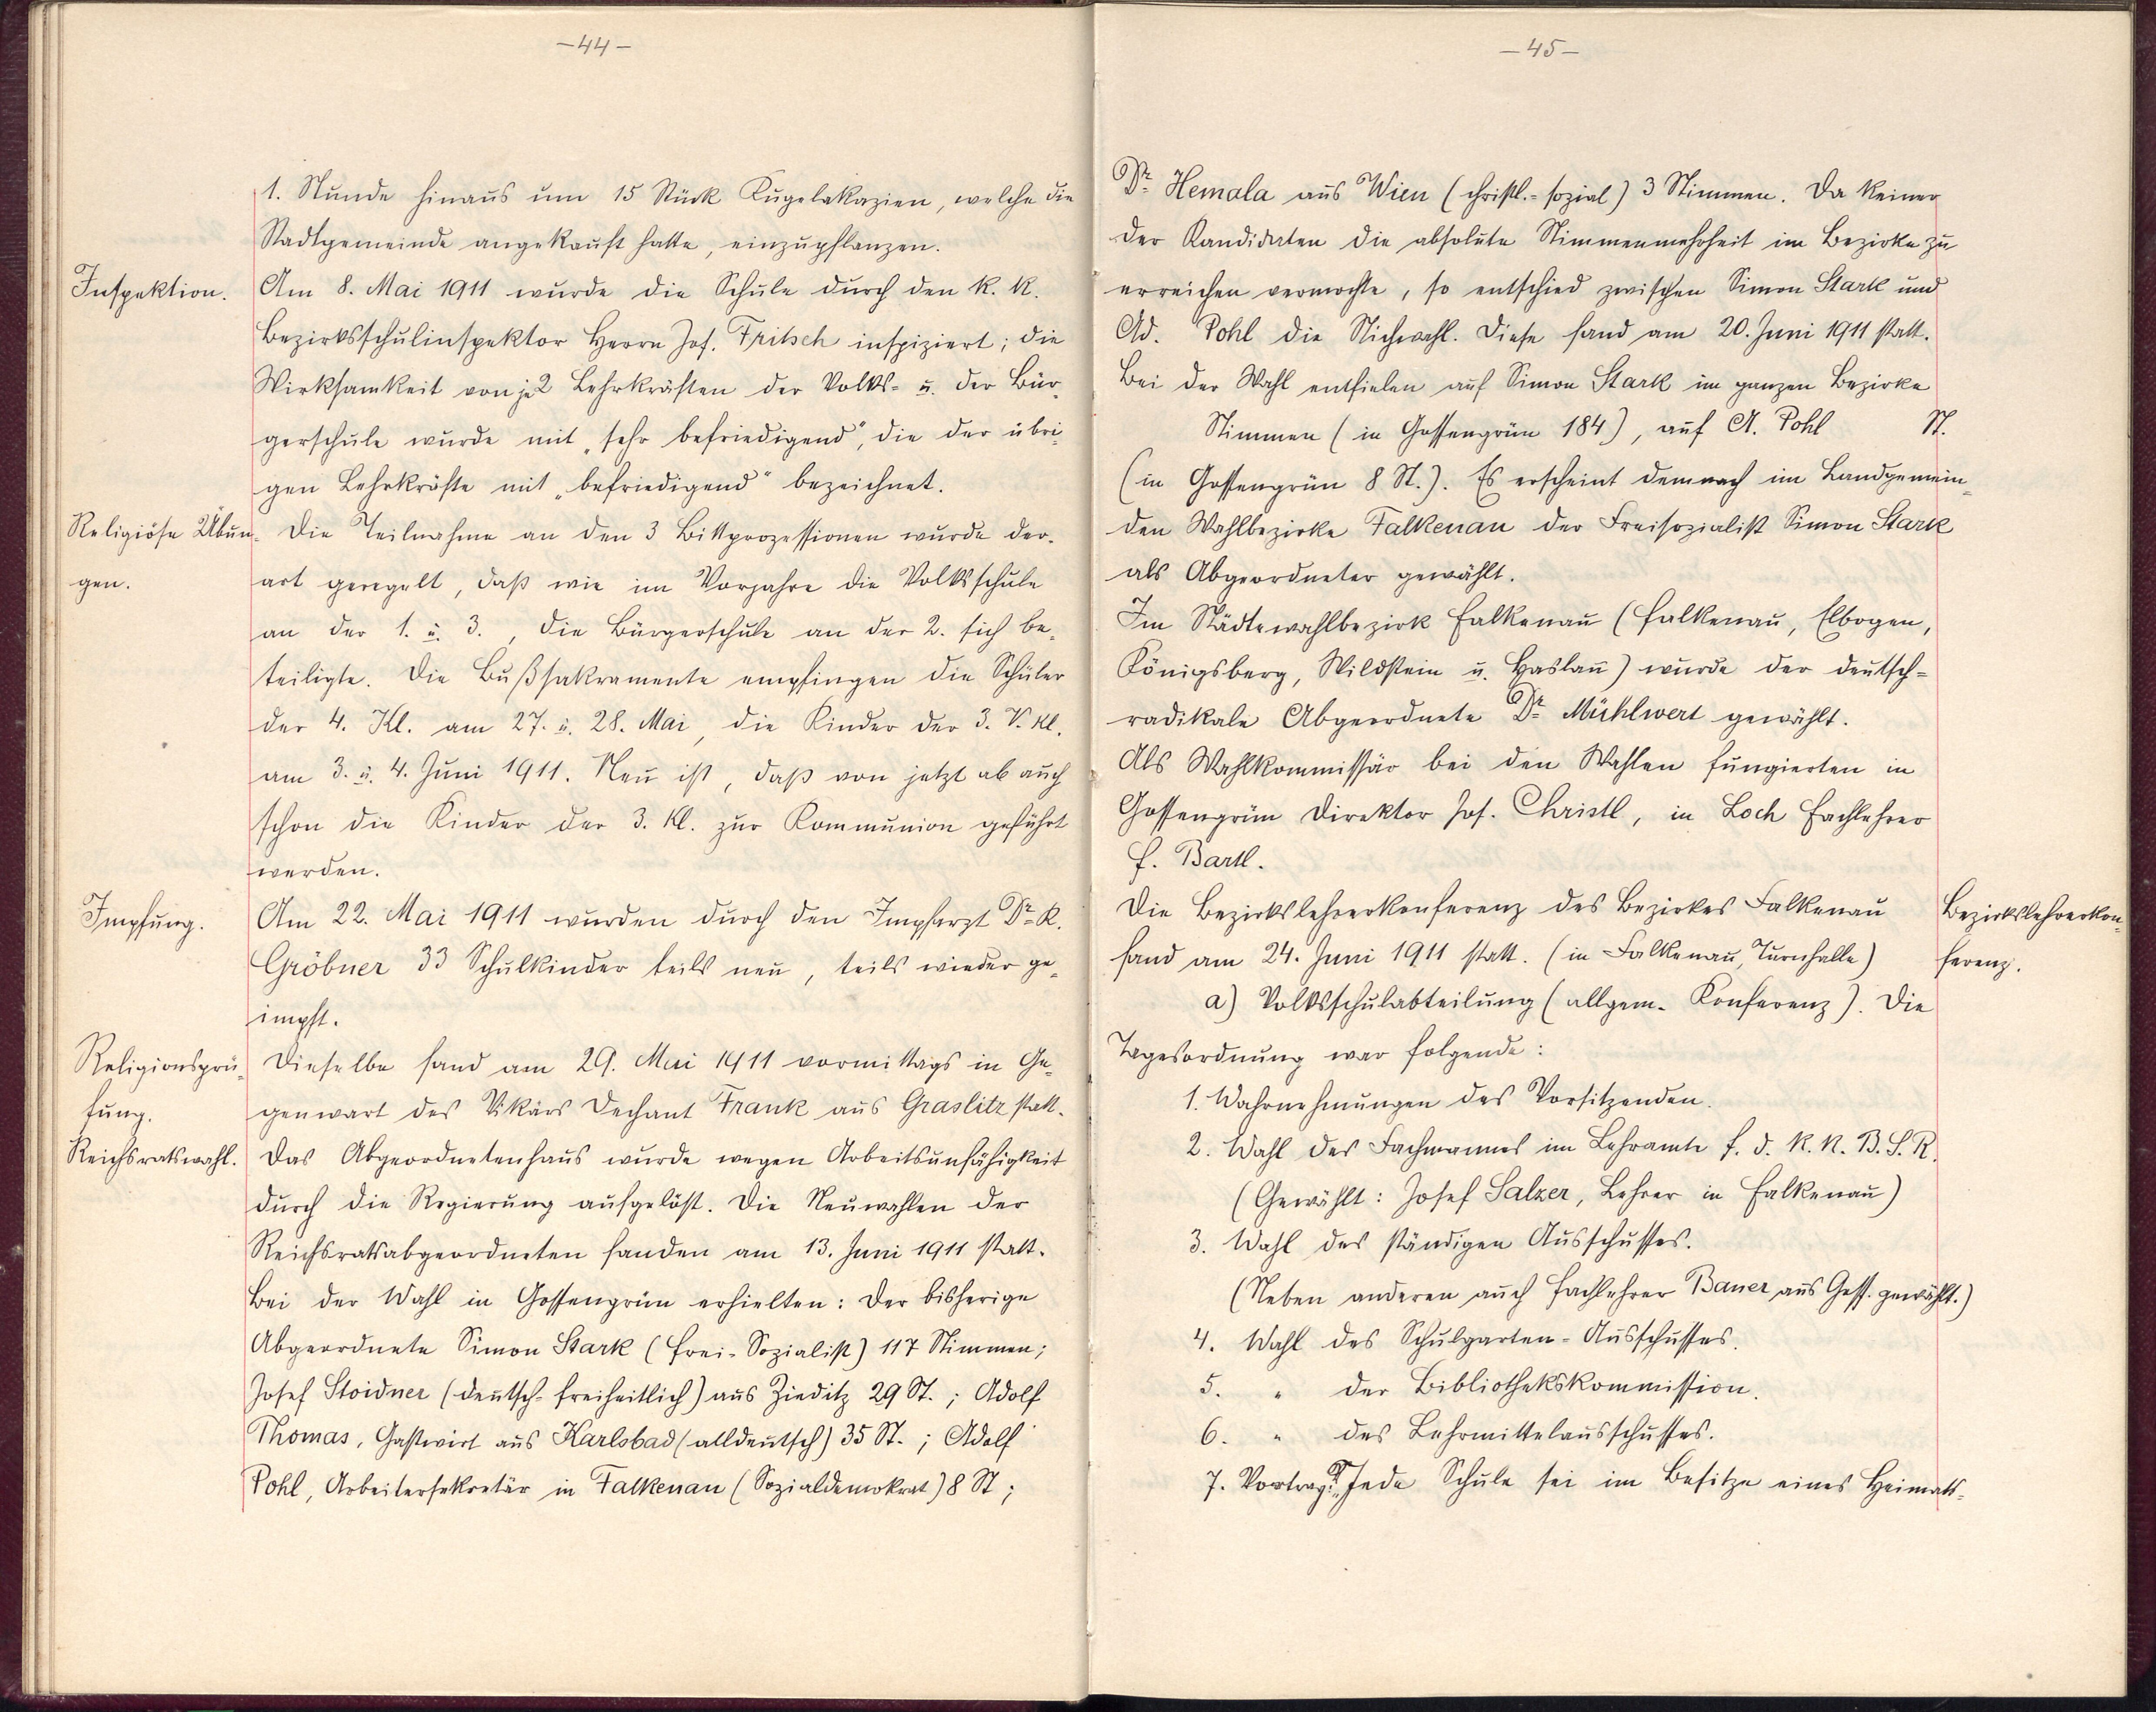 -44-
1. Stunde hinaus um 15 Stück Kugelakazien, welche die
Stadtgemeinde angekauft hatte, einzupflanzen.
Inspektion. Am 8. Mai 1911 wurde die Schule durch den k. k.
Bezirksschulinspektor Herrn Jos. Fritsch inspiziert; die
Wirksamkeit von je 2 Lehrkräften der Volks- u. der Bür-
gerschule wurde mit „sehr befriedigend“, die der übri-
gen Lehrkräfte mit „befriedigend“ bezeichnet.
Religiöse Übun- Die Teilnahme an den 3 Bittprozessionen wurde der-
gen. art geregelt, daß wie im Vorjahre die Volksschule
an der 1. u. 3., die Bürgerschule an der 2. sich be-
teiligte. Die Bußsakramente empfingen die Schüler
der 4. Kl. am 27. u. 28. Mai, die Kinder der 3. V. Kl.
am 3. u. 4. Juni 1911. Neu ist, daß von jetzt ab auch
schon die Kinder der 3. Kl. zur Kommunion geführt
werden.
Impfung. Am 22. Mai 1911 wurden durch den Impfarzt Dr. K.
Gröbner 33 Schulkinder teils neu, teils wieder ge-
impft.
Religionsprü- Dieselbe fand am 29. Mai 1911 vormittags in Ge-
fung. genwart des Vikärs Dechant Frank aus Graslitz statt.
Reichsratswahl. Das Abgeordnetenhaus wurde wegen Arbeitsunfähigkeit
durch die Regierung aufgelöst. Die Neuwahlen der
Reichsratsabgeordneten fanden am 13. Juni 1911 statt.
Bei der Wahl in Gossengrün erhielten: Der bisherige
Abgeordnete Simon Stark (frei-Sozialist) 117 Stimmen;
Josef Stoidner (deutsch-freiheitlich) aus Zieditz 29 St.; Adolf
Thomas, Gastwirt aus Karlsbad (alldeutsch) 35 St.; Adolf
Pohl, Arbeitersekretär in Falkenau (Sozialdemokrat) 8 St;
-45-
Dr. Hemala aus Wien (christl.-sozial) 3 Stimmen. Da keiner
der Kandidaten die absolute Stimmenmehrheit im Bezirke zu
erreichen vermochte, so entschied zwischen Simon Stark und
Ad. Pohl die Stichwahl. Diese fand am 20. Juni 1911 statt.
Bei der Wahl entfielen auf Simon Stark im ganzen Bezirke
Stimmen (in Gossengrün 184), auf A. Pohl St.
(in Gossengrün 8 St.). Es erscheint demnach im Landgemein-
den Wahlbezirke Falkenau der Freisozialist Simon Stark
als Abgeordneter gewählt.
Im Städtewahlbezirk Falkenau (Falkenau, Elbogen,
Königsberg, Wildstein u. Haslau) wurde der deutsch-
radikale Abgeordnete Dr. Mühlwert gewählt.
Als Wahlkommissär bei den Wahlen fungierten in
Gossengrün Direktor Jos. Christl, in Loch Fachlehrer
F. Bartl.
Die Bezirkslehrerkonferenz des Bezirkes Falkenau Bezirkslehrerkon-
fand am 24. Juni 1911 statt. (in Falkenau, Turnhalle) ferenz.
a) Volksschulabteilung (allgem. Konferenz). Die
Tagesordnung war folgende:
1. Wahrnehmungen des Vorsitzenden.
2. Wahl des Fachmannes im Lehramte f. d. k. k. B. S. R.
(Gewählt: Josef Salzer, Lehrer in Falkenau)
3. Wahl des ständigen Ausschusses.
(Neben anderen auch Fachlehrer Bauer aus Goss. gewählt.)
4. Wahl des Schulgarten-Ausschusses.
5. " der Bibliothekskommission.
6. " des Lehrmittelausschusses.
7. Vortrag: „Jede Schule sei im Besitze eines Heimats-